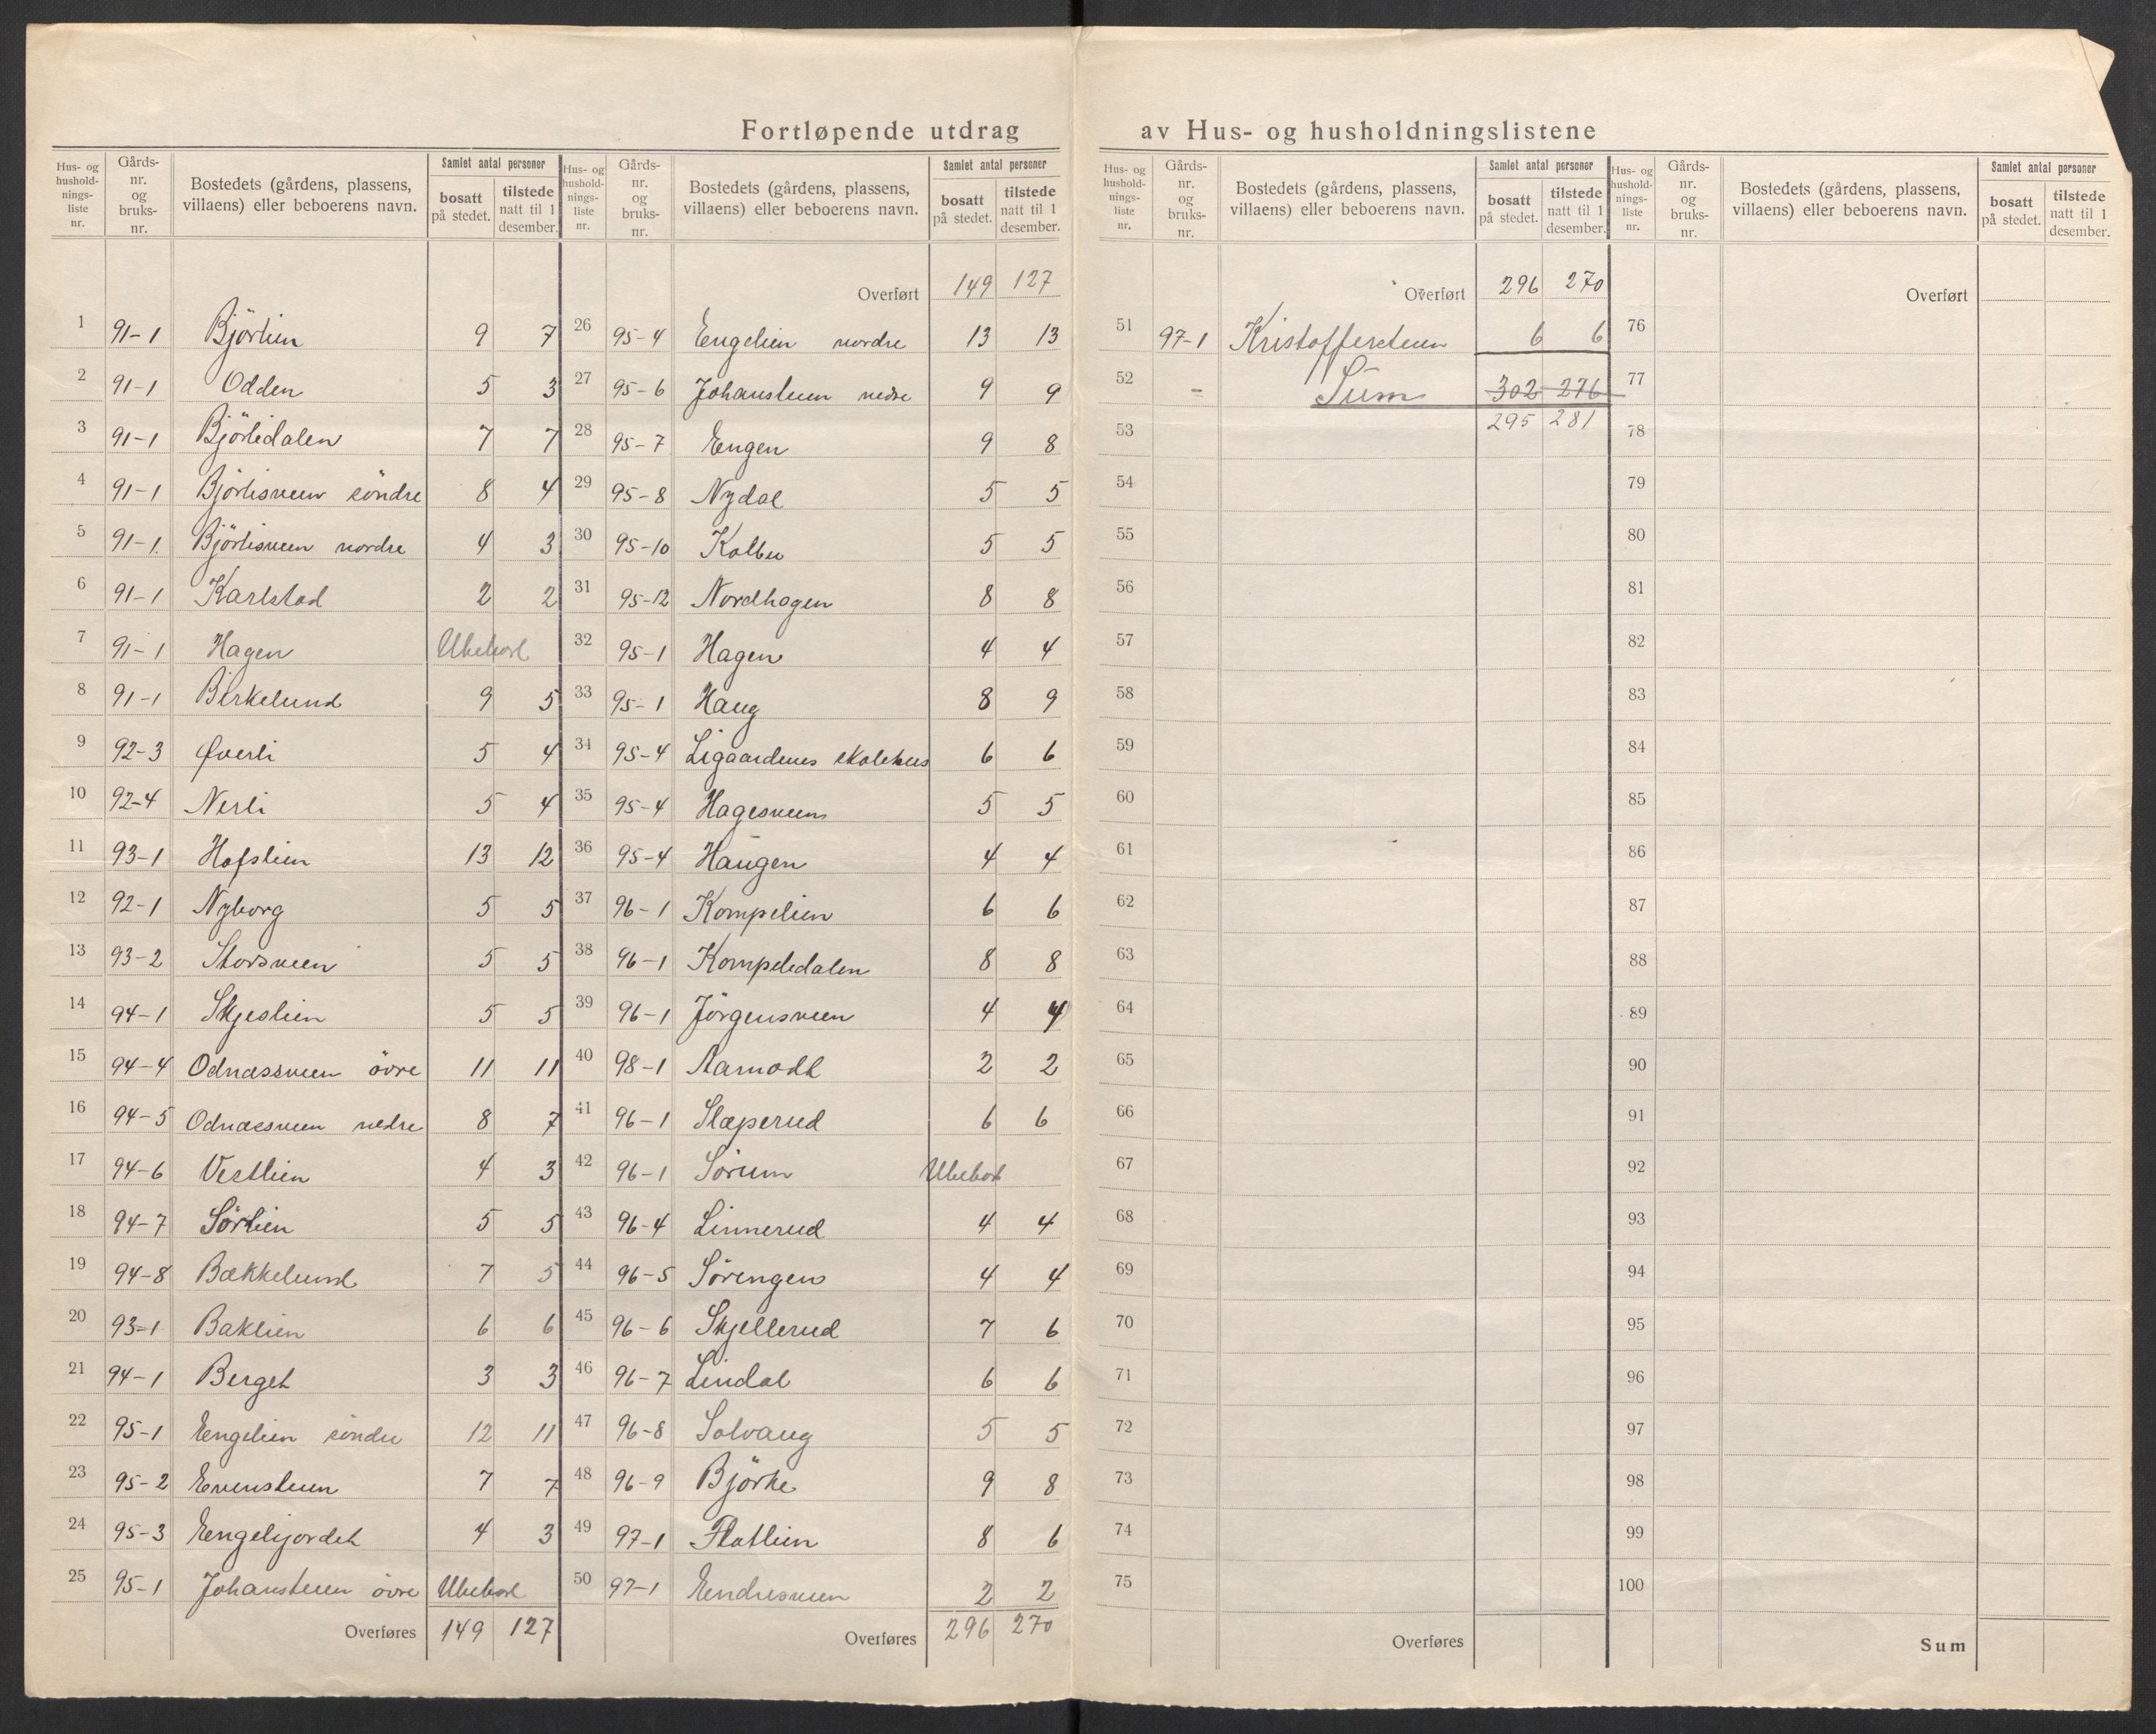 Fortløpende utdrag av Hus- og husholdningslistene
Hus- og husholdnings-liste nr. Gårds-nr. og bruks-nr. Bostedets (gårdens, plassens, villaens) eller beboerens navn. Samlet antal personer bosatt på stedet. tilstede natt til 1 desember.
1 91-1 Björlien 9 7
2 91-1 Odden 5 3
3 91-1 Björlidalen 7 7
4 91-1 Björlisveen söndre 8 4
5 91-1 Björlisveen nordre 4 3
6 91-1 Karlstad 2 2
7 91-1 Hagen Ubeboet
8 91-1 Birkelund 9 5
9 92-3 Øverli 5 4
10 92-4 Nerli 5 4
11 93-1 Hofslien 13 12
12 92-1 Nyborg 5 5
13 93-2 Storsveen 5 5
14 94-1 Skjeslien 5 5
15 94-4 Odnæssveen övre 11 11
16 94-5 Odnæsveen nedre 8 7
17 94-6 Vestlien 4 3
18 94-7 Sörlien 5 5
19 94-8 Bækkelund 7 5
20 93-1 Baklien 6 6
21 94-1 Berget 3 3
22 95-1 Engelien söndre 12 11
23 95-2 Evensteen 7 7
24 95-3 Engelijordet 4 3
25 95-1 Johansteen övre Ubeboet
Overføres 149 127
Hus- og husholdnings-liste nr. Gårds-nr. og bruks-nr. Bostedets (gårdens, plassens, villaens) eller beboerens navn. Samlet antal personer bosatt på stedet. tilstede natt til 1 desember.
Overført 149 127
26 95-4 Engelien nordre 13 13
27 95-6 Johansteen nedre 9 9
28 95-7 Engen 9 8
29 95-8 Nydal 5 5
30 95-10 Kolbu 5 5
31 95-12 Nordhagen 8 8
32 95-1 Hagen 4 4
33 95-1 Haug 8 9
34 95-4 Ligaardenes skolehus 6 6
35 95-4 Hagesveen 5 5
36 95-4 Haugen 4 4
37 96-1 Kompelien 6 6
38 96-1 Kompeledalen 8 8
39 96-1 Jörgensveen 4 4
40 98-1 Aamodt 2 2
41 96-1 Slæperud 6 6
42 96-1 Sörum Ubeboet
43 96-4 Linnerud 4 4
44 96-5 Sörengen 4 4
45 96-6 Skjellerud 7 6
46 96-7 Lindal 6 6
47 96-8 Solvang 5 5
48 96-9 Björke 9 8
49 97-1 Flatlien 8 6
50 97-1 Endresveen 2 2
Overføres 296 270
Hus- og husholdnings-liste nr. Gårds-nr. og bruks-nr. Bostedets (gårdens, plassens, villaens) eller beboerens navn. Samlet antal personer bosatt på stedet. tilstede natt til 1 desember.
Overført 296 270
51 97-1 Kristoffersteen 6 6
52 - Sum 302 276
53 295 281
54
55
56
57
58
59
60
61
62
63
64
65
66
67
68
69
70
71
72
73
74
75
Overføres
Hus- og husholdnings-liste nr. Gårds-nr. og bruks-nr. Bostedets (gårdens, plassens, villaens) eller beboerens navn. Samlet antal personer bosatt på stedet. tilstede natt til 1 desember.
Overført
76
77
78
79
80
81
82
83
84
85
86
87
88
89
90
91
92
93
94
95
96
97
98
99
100
Sum